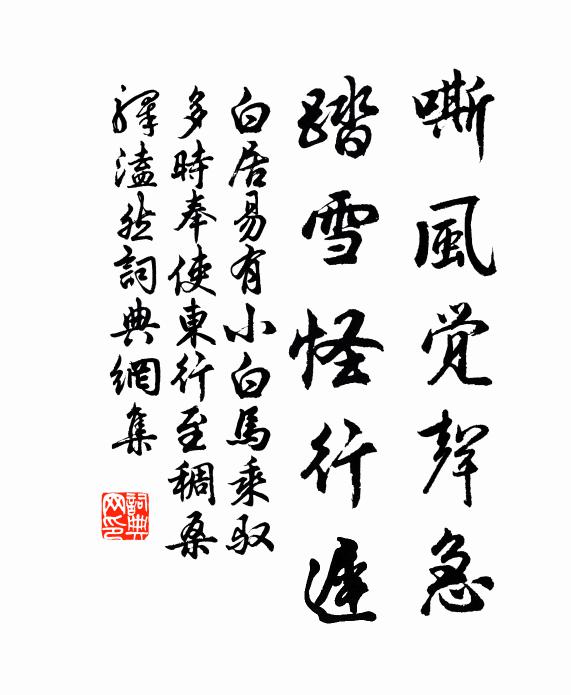 嘶風觉聲急
踏雪怪行遲
白居易有小白馬乘驭
多時奉使東行至稠桑
驛溘然詞典網集
詞典
网印